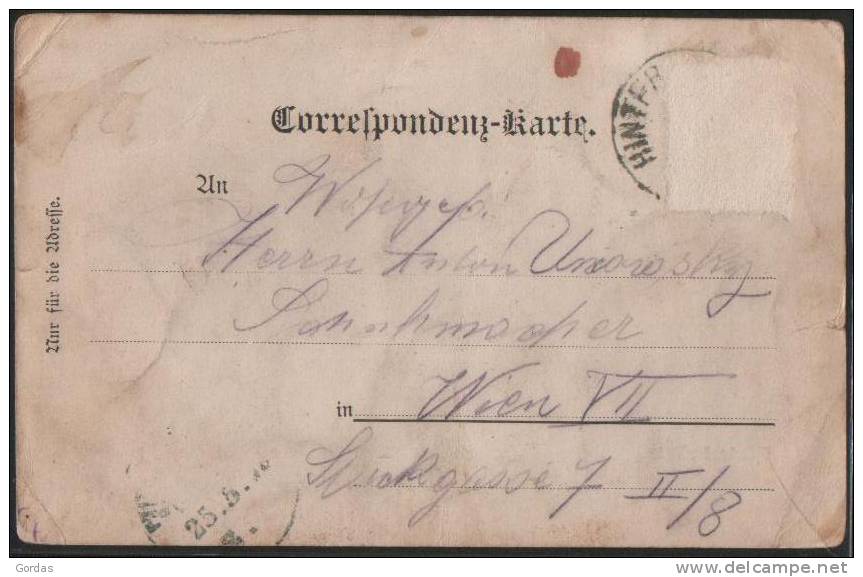 Correſpondenz-Karte.
HINTERB
An
Herrn Anton Unorowsky
Schuhmacher
in Wien VII
Stuckgasse 7 II/8
Nur für die Adreſſe.
25.5.
Gordas
www.delcampe.net